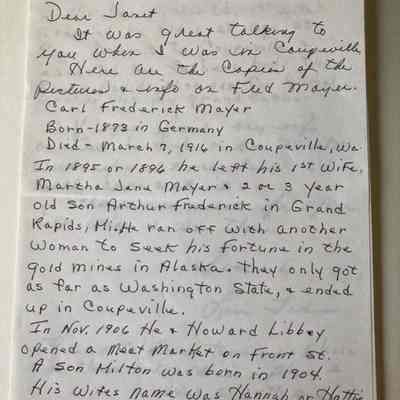 Dear Janet
It was great talking to
you when I was in Coupeville
Here are the Copies of the
pictures & info on Fred Mayer.
Carl Frederick Mayer
Born-1873 in Germany
Died - March 7, 1916 in Coupeville, Wa.
In 1895 or 1896 he left his 1st Wife,
Martha Jena Mayer & 2 or 3 year
old Son Arthur Frederick in Grand
Rapids, Mi. He ran off with another
Woman to Seek his Fortune in the
gold mines in Alaska. They only got
as far as Washington State, & ended
up in Coupeville.
In Nov. 1906 He & Howard Libbey
opened a Meat Market on Front St.
A Son Hilton was born in 1904.
His Wifes Name was Hannah or Hattie